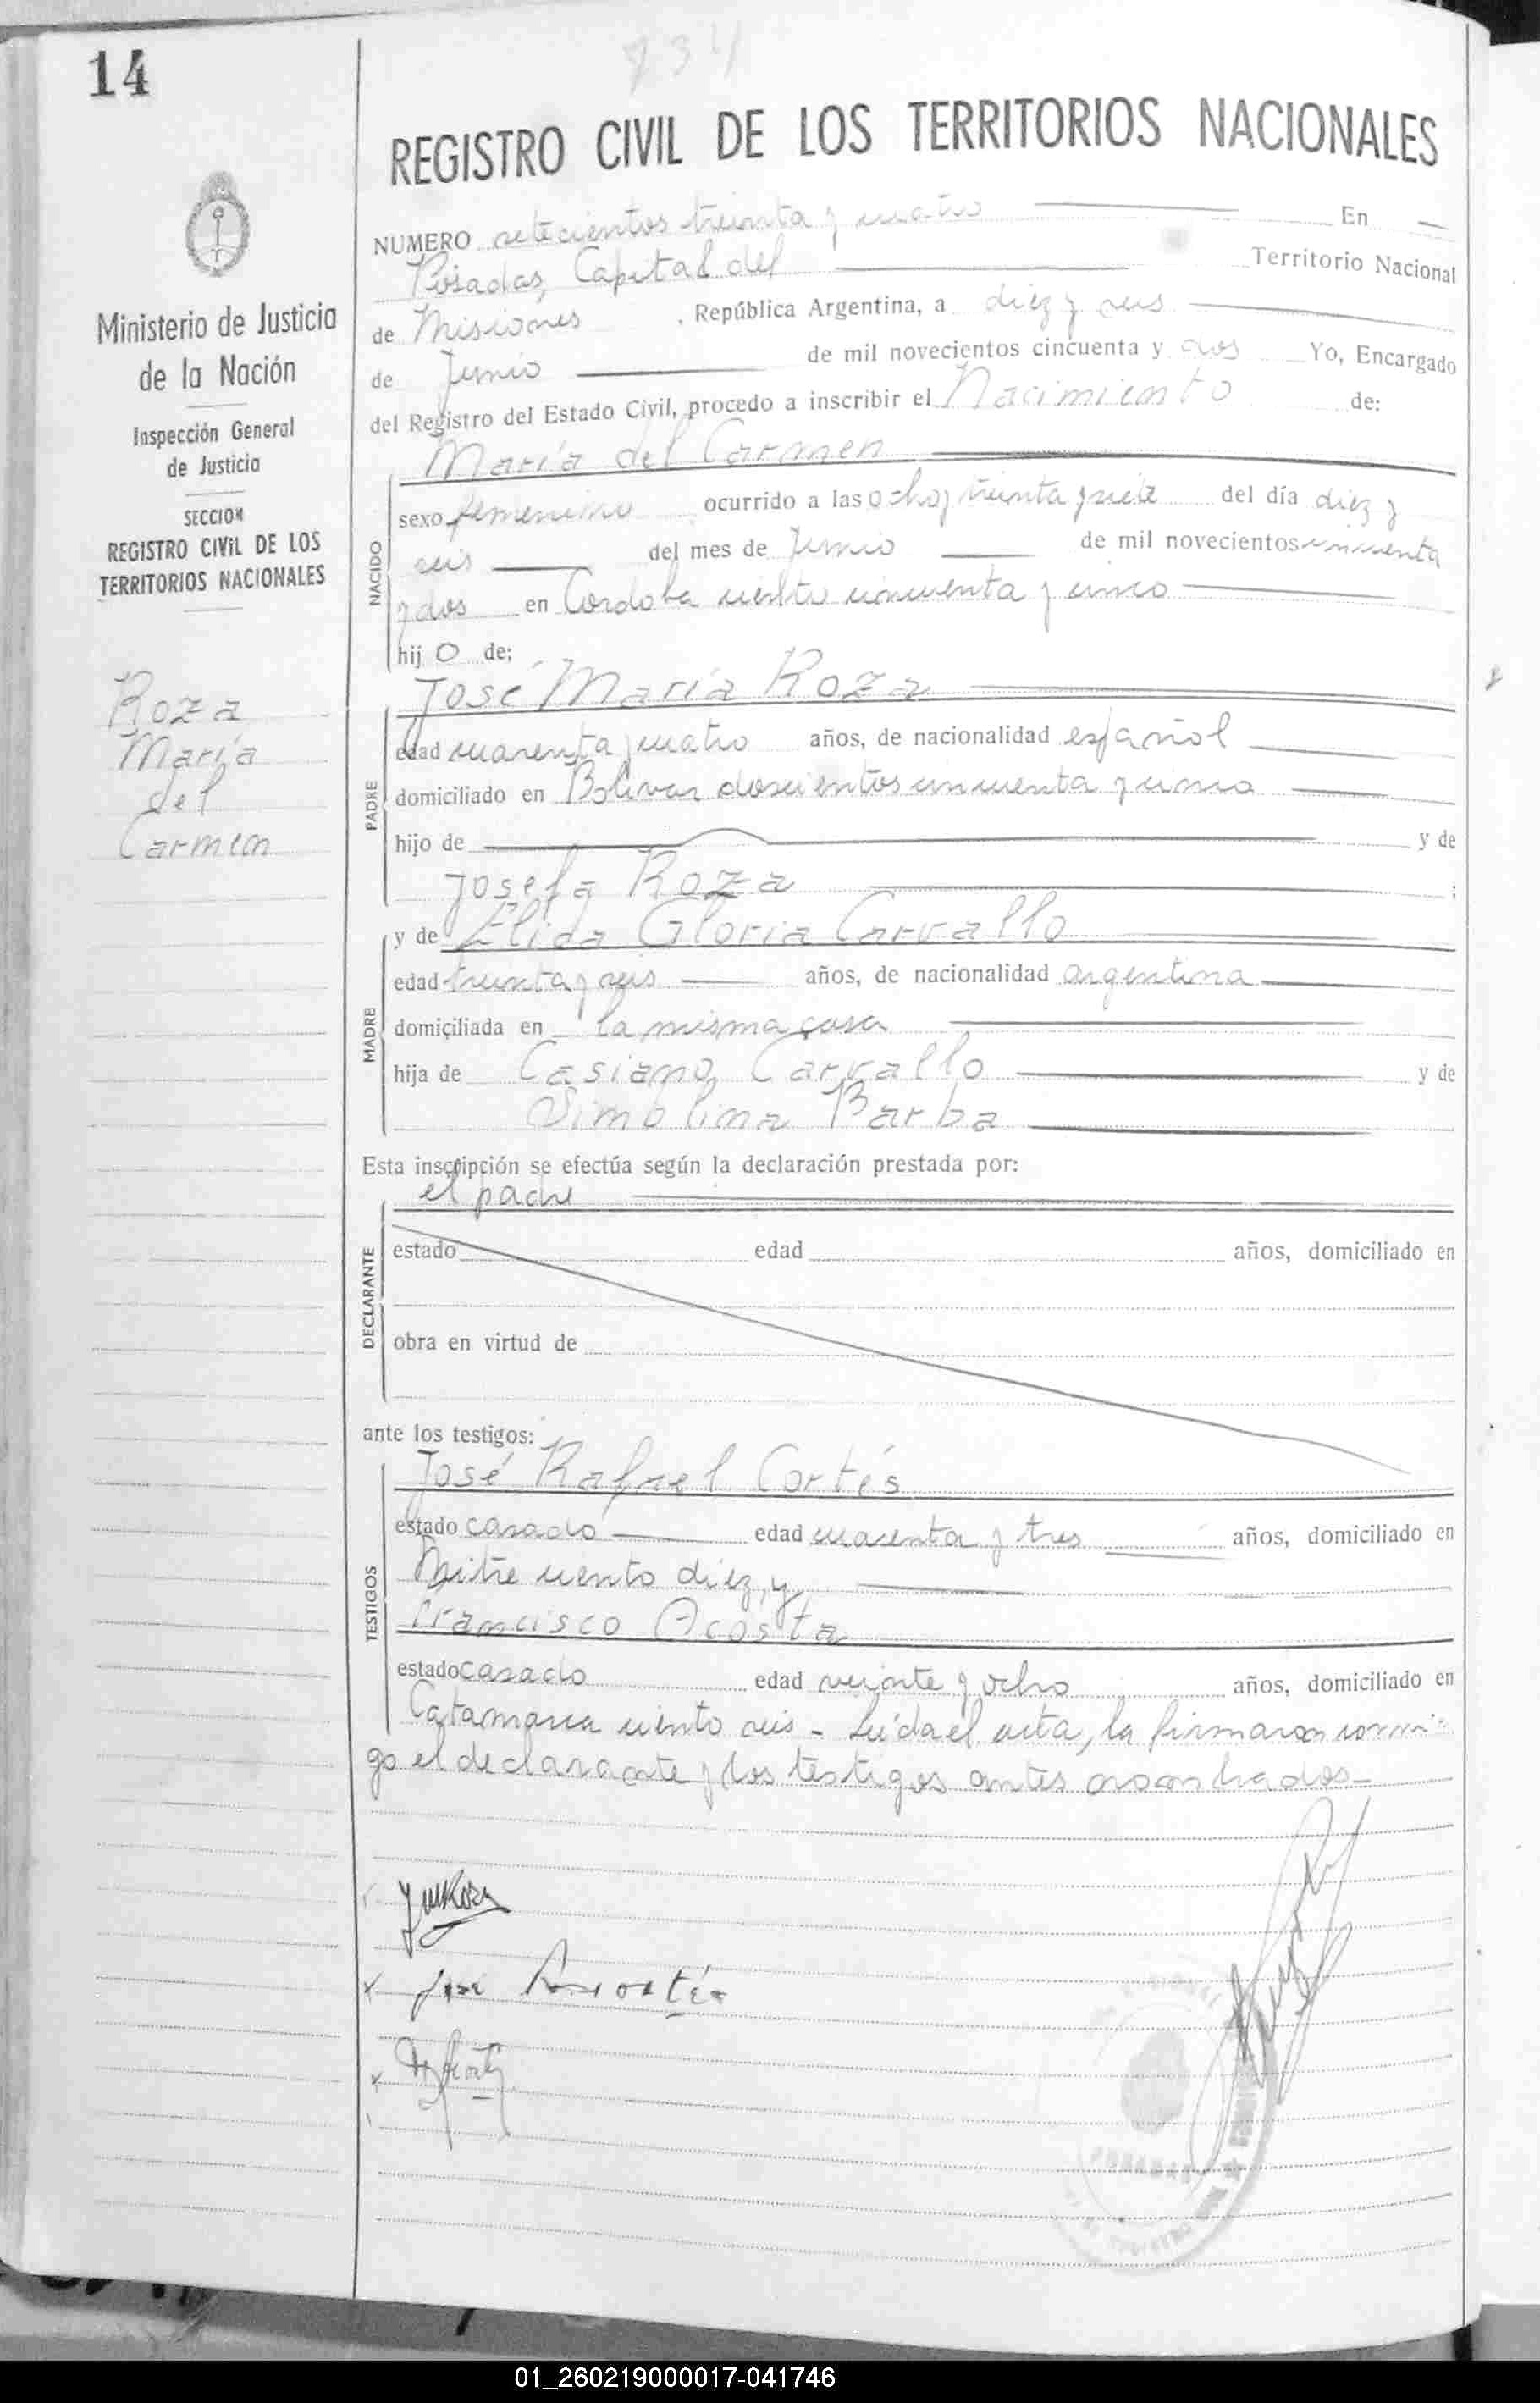 14
734
REGISTRO CIVIL DE LOS TERRITORIOS NACIONALES
Ministerio de Justicia
de la Nación
Inspección General
de Justicia
SECCION
REGISTRO CIVIL DE LOS
TERRITORIOS NACIONALES
Roza
María
del
Carmen
NUMERO setecientos treinta y cuatro En
Posadas, Capital del Territorio Nacional
de Misiones, República Argentina, a diez y seis
de Junio de mil novecientos cincuenta y dos Yo, Encargado
del Registro del Estado Civil, procedo a inscribir el Nacimiento de:
María del Carmen
NACIDO
sexo femenino ocurrido a las ocho y treinta y siete del día diez y
seis del mes de Junio de mil novecientos cincuenta
y dos en Cordoba ciento cincuenta y cinco
hij o de;
José María Roza
PADRE
edad cuarenta y cuatro años, de nacionalidad español
domiciliado en Bolivar doscientos cincuenta y cinco
hijo de y de
Josefa Roza ;
MADRE
y de Elida Gloria Carvallo
edad treinta y seis años, de nacionalidad argentina
domiciliada en la misma casa
hija de Casiano Carvallo y de
Simolina Barba
Esta inscripción se efectúa según la declaración prestada por:
el padre
DECLARANTE
estado edad años, domiciliado en
obra en virtud de
ante los testigos:
José Rafael Cortés
TESTIGOS
estado casado edad cuarenta y tres años, domiciliado en
Mitre ciento diez, y
Francisco Acosta
estado casado edad veinte y ocho años, domiciliado en
Catamarca ciento seis - Leída el acta, la firmaron conmi-
go el declarante y los testigos antes nombrados-
José
POSADAS
01_260219000017-041746